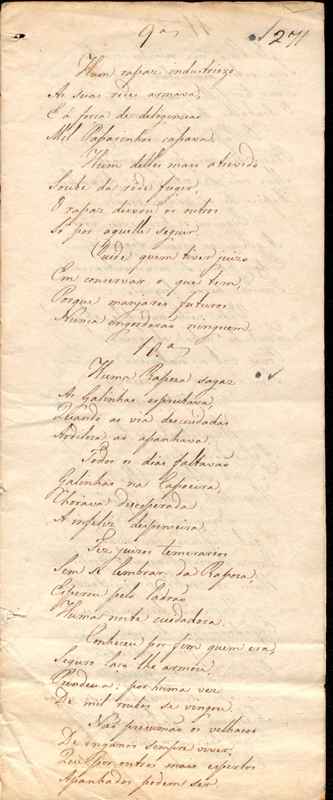 9ª
271
Hum rapaz industriozo
As suas redes armava,
E á força de deligencias
Mil Passarinhos caçava.
Hum delles mais atrevido
Soube da rede fugir,
O rapaz deixou os outros
Só por aquelle seguir
Cuide quem tiver juizo
Em conservar o que tem,
Porque manjares futuros
Nunca engordarão ninguem.
10ª
Huma Rapoza sagaz
As Galinhas espreitava
Quando as via descuidadas
Ardiloza as apanhava.
Todos os dias faltavão
Galinhas na Capoeira,
Chorava desesperada
A infeliz despenseira.
Fez juizos temerarios
Sem se lembrar da Rapoza,
Esperou pelo Ladrão
Huma noite cuidadoza.
Conheceu por fim quem era,
Seguro laço lhe armou,
Prendeu-a: por huma vez
De mil roubos se vingou.
Não prezumão os velhacos
De enganos sempre viver,
Que por outros mais espertos
Apanhados podem ser